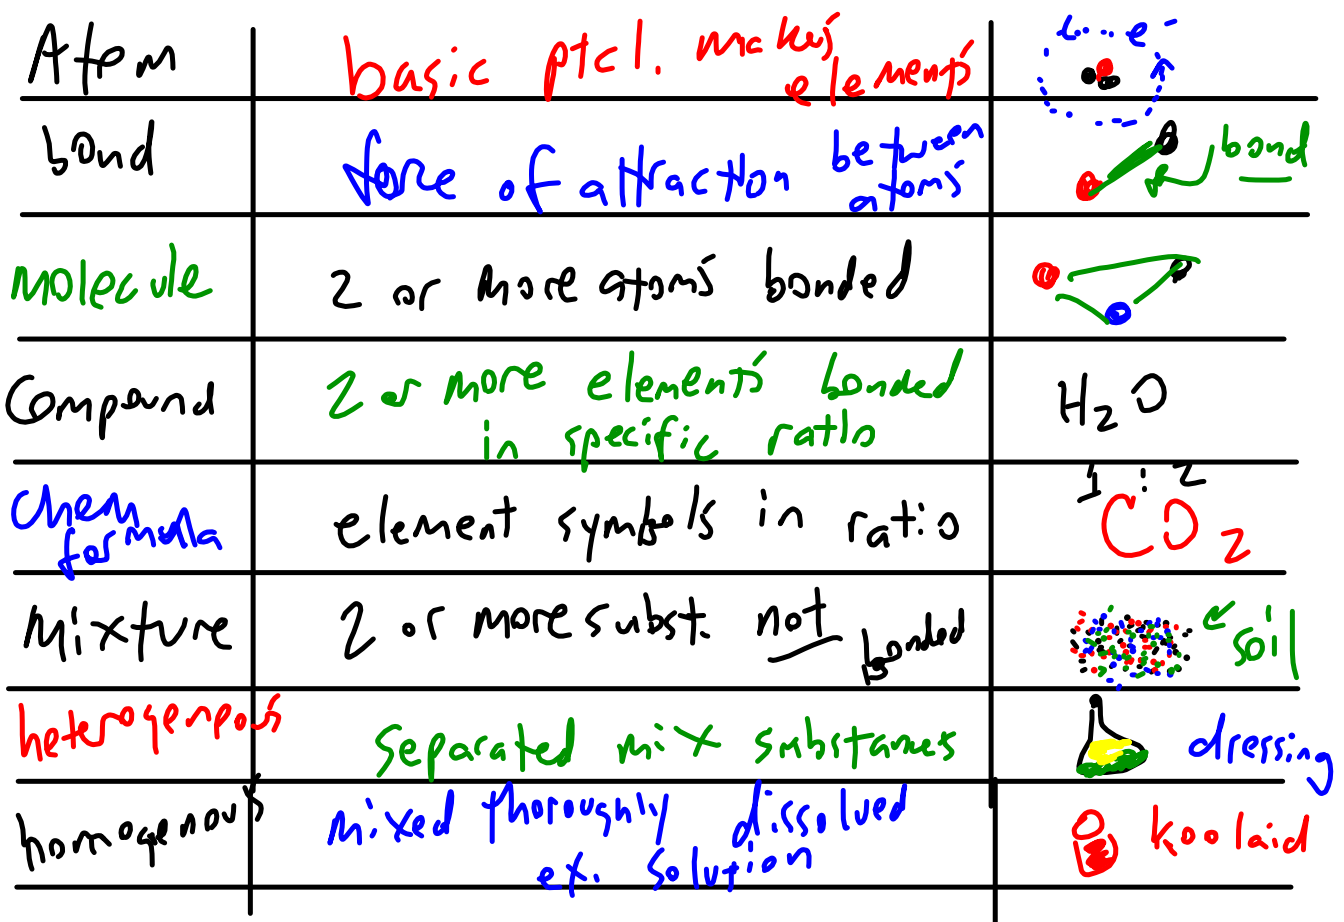 Atom basic ptcl. makes elements e-
bond force of attraction between atoms bond
molecule 2 or more atoms bonded
Compound 2 or more elements bonded in specific ratio H2O
chem formula element symbols in ratio 1 : 2 CO2
Mixture 2 or more subst. not bonded soil
heterogeneous separated mix substances dressing
homogenous mixed thoroughly dissolved ex. solution koolaid